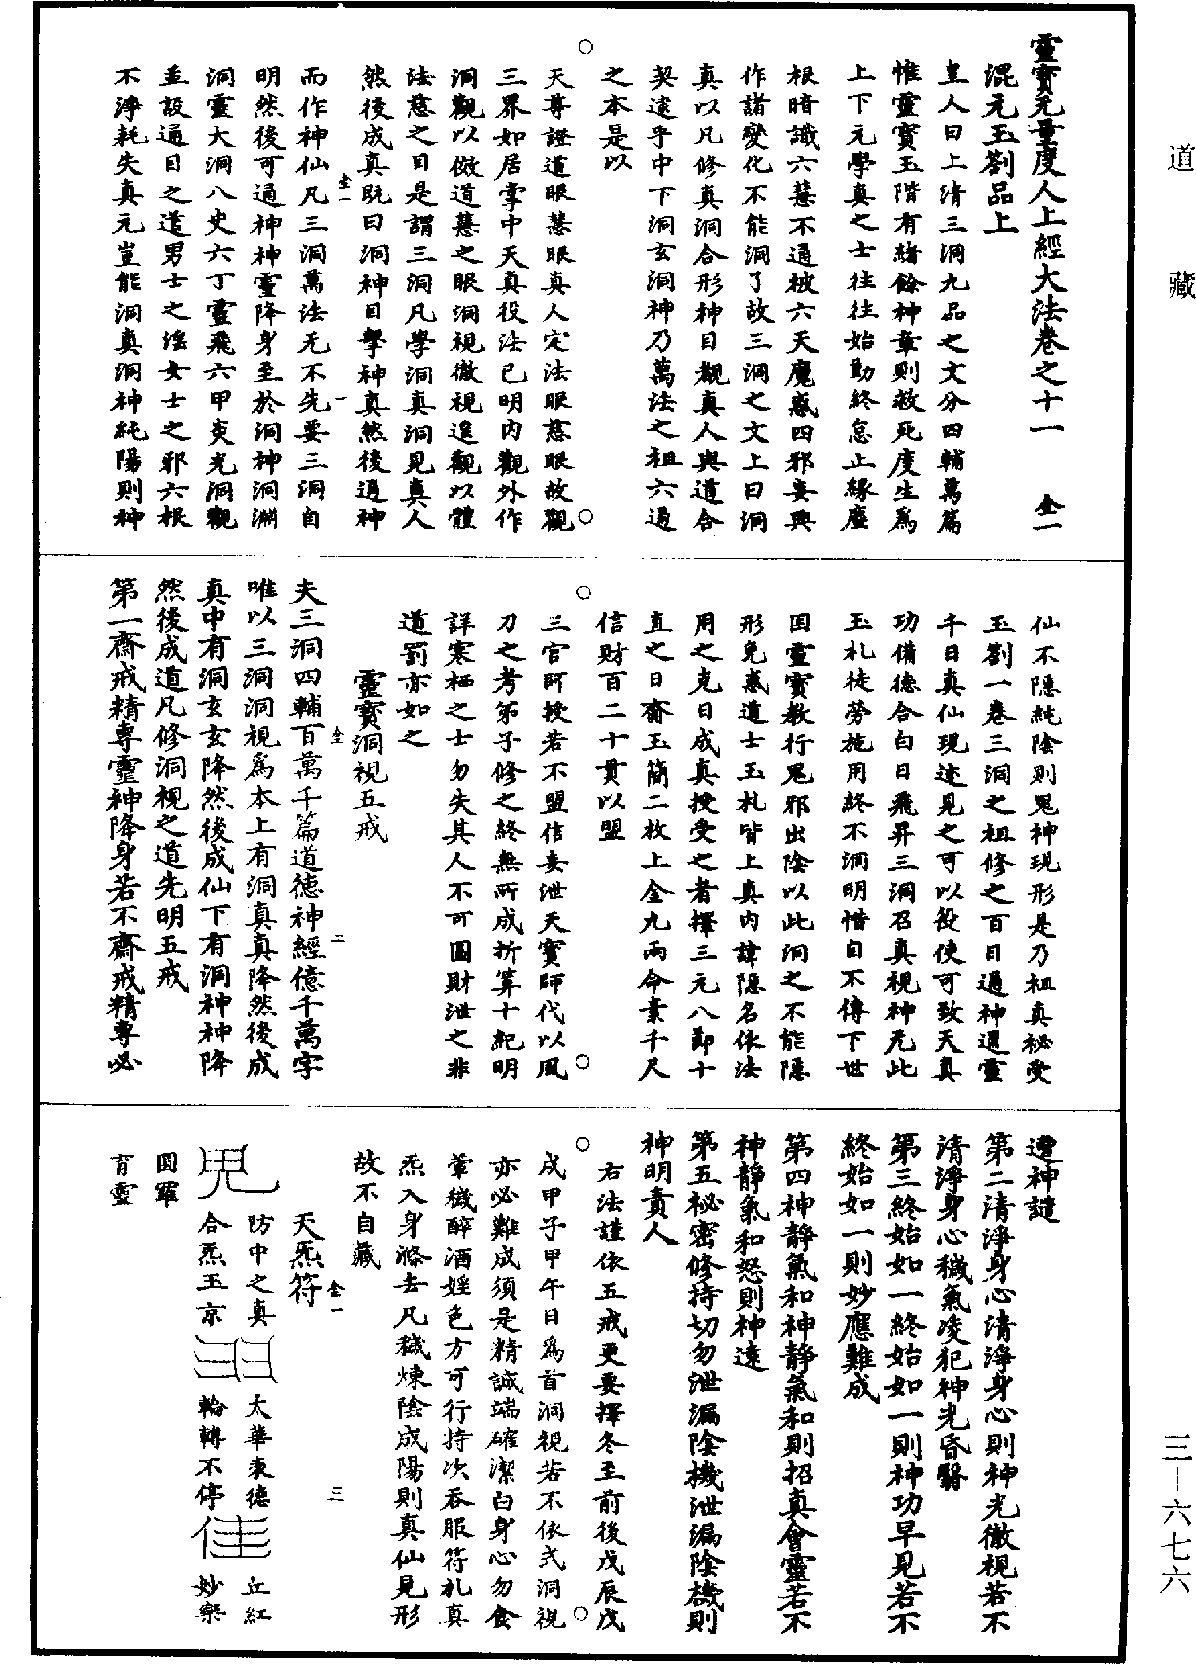 道藏
靈寶无量度人上經大法卷之十一　全一
混元玉劄品上
皇人曰上清三洞九品之文分四輔萬篇
惟靈寶玉階有緒餘神章則救死度生爲
上下元學真之士往往始勤終怠止緣塵
根暗識六慧不通被六天魔惑四邪妄興
作諸變化不能洞了故三洞之文上曰洞
真以凡修真洞合形神目覩真人與道合
契逮乎中下洞玄洞神乃萬法之祖六通
之本是以
天尊證道眼慧眼真人定法眼慈眼故觀
三界如居掌中天真役法已明內觀外作
洞觀以倣道慧之眼洞視徹視遥觀以體
法慈之目是謂三洞凡學洞真洞見真人
然後成真既曰洞神目擊神真然後通神
而作神仙凡三洞萬法无不先要三洞自
明然後可通神神靈降身至於洞神洞淵
洞靈大洞八史六丁靈飛六甲夷光洞觀
並設通目之道男士之淫女士之邪六根
不淨耗失真元豈能洞真洞神純陽則神
仙不隱純陰則鬼神現形是乃祖真秘受
玉劄一卷三洞之祖修之百日通神通靈
千日真仙現迹見之可以役使可致天真
功備德合白日飛昇三洞召真視神无此
玉札徒勞施用終不洞明惜自不傳下世
因靈寶教行鬼邪出陰以此洞之不能隱
形免惑道士玉札皆上真內諱隱名依法
用之克日成真授受之者擇三元八節十
直之日齋玉簡二枚上金九兩命素千尺
信財百二十貫以盟
三官師授若不盟信妄泄天寶師代以風
刀之考第子修之終無所成折算十紀明
詳寒栖之士勿失其人不可圖財泄之非
道罰亦如之
靈寶洞視五戒
夫三洞四輔百萬千篇道德神經億千萬字
唯以三洞洞視爲本上有洞真真降然後成
真中有洞玄玄降然後成仙下有洞神神降
然後成道凡修洞視之道先明五戒
第一齋戒精專靈神降身若不齋戒精專必
遭神譴
第二清淨身心清淨身心則神光徹視若不
清淨身心穢氣凌犯神光昏翳
第三終始如一終始如一則神功早見若不
終始如一則妙應難成
第四神靜氣和神靜氣和則招真會靈若不
神靜氣和怒則神遠
第五祕密修持切勿泄漏陰機泄漏陰機則
神明責人
右法謹依五戒更要擇冬至前後戊辰戊
戌甲子甲午日爲首洞視若不依式洞視
亦必難成須是精誠端確潔白身心勿食
葷穢醉酒婬色方可行持次吞服符札真
炁入身滌去凡穢煉陰成陽則真仙見形
故不自藏
天炁符
防中之真
合炁玉京
太華衷德
輪轉不停
丘紅
妙樂
圓羅
育靈
三－六七六